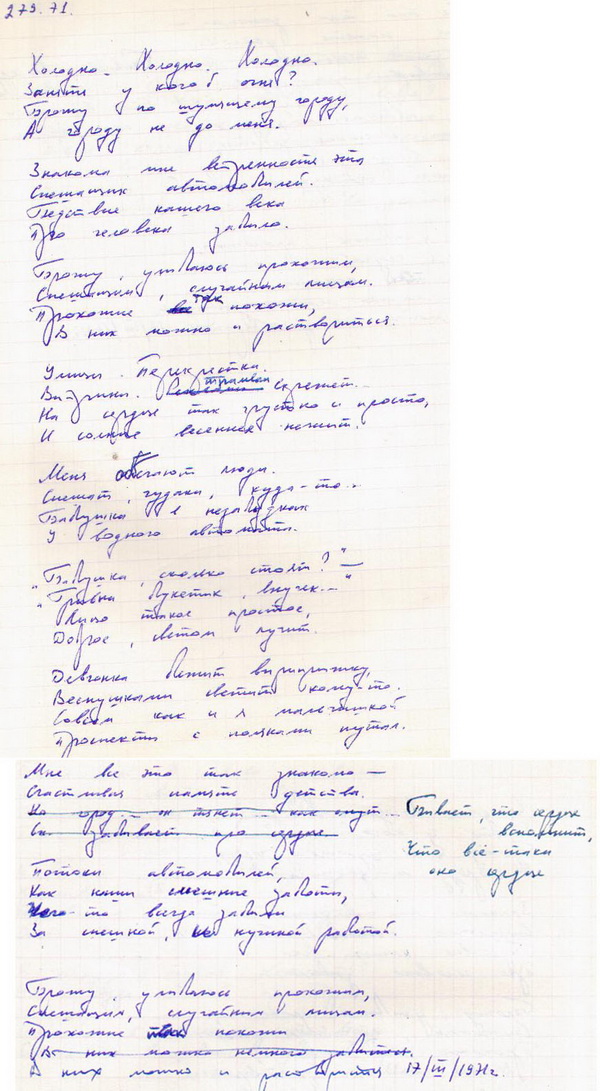 273. 71.
Холодно. Холодно. Холодно.
Занять у кого б огня?
Брожу по шумящему городу,
А городу не до меня.
Знакома мне ветренность эта
Спешащих автомобилей.
Бедствие нашего века
Про человека забыло.
Брожу, улыбаюсь прохожим,
Спешащим, случайным лицам.
Прохожие так похожи,
В них можно и раствориться.
Улицы. Перекрестки.
Витрины. трамвая скрежет...
На сердце так грустно и просто,
И солнце весеннее нежит.
Меня обегают люди.
Спешат, чудаки, куда-то...
Бабушка с незабудками
У водного автомата.
"Бабушка, сколько стоят?" —
"Гривна букетик, внучек..."
Лицо такое простое,
Доброе, светом лучит.
Девчонка бежит вприпрыжку,
Веснушками светит кому-то.
Совсем как и я мальчишкой
Проспекты с полянами путал.
Мне все это так знакомо —
Счастливая память детства.
Но город — он тянет как омут...
Он забывает про сердце
Бывает, что сердце
вспомнит,
Что всё-таки
оно сердце
Потоки автомобилей,
Как наши смешные заботы,
Чего-то всегда забыли
За спешной, нужной работой.
Брожу, улыбаюсь прохожим,
Спешащим, случайным лицам.
Прохожие так похожи
В них можно немного забыться.
В них можно и раствориться 17/III/1971г.